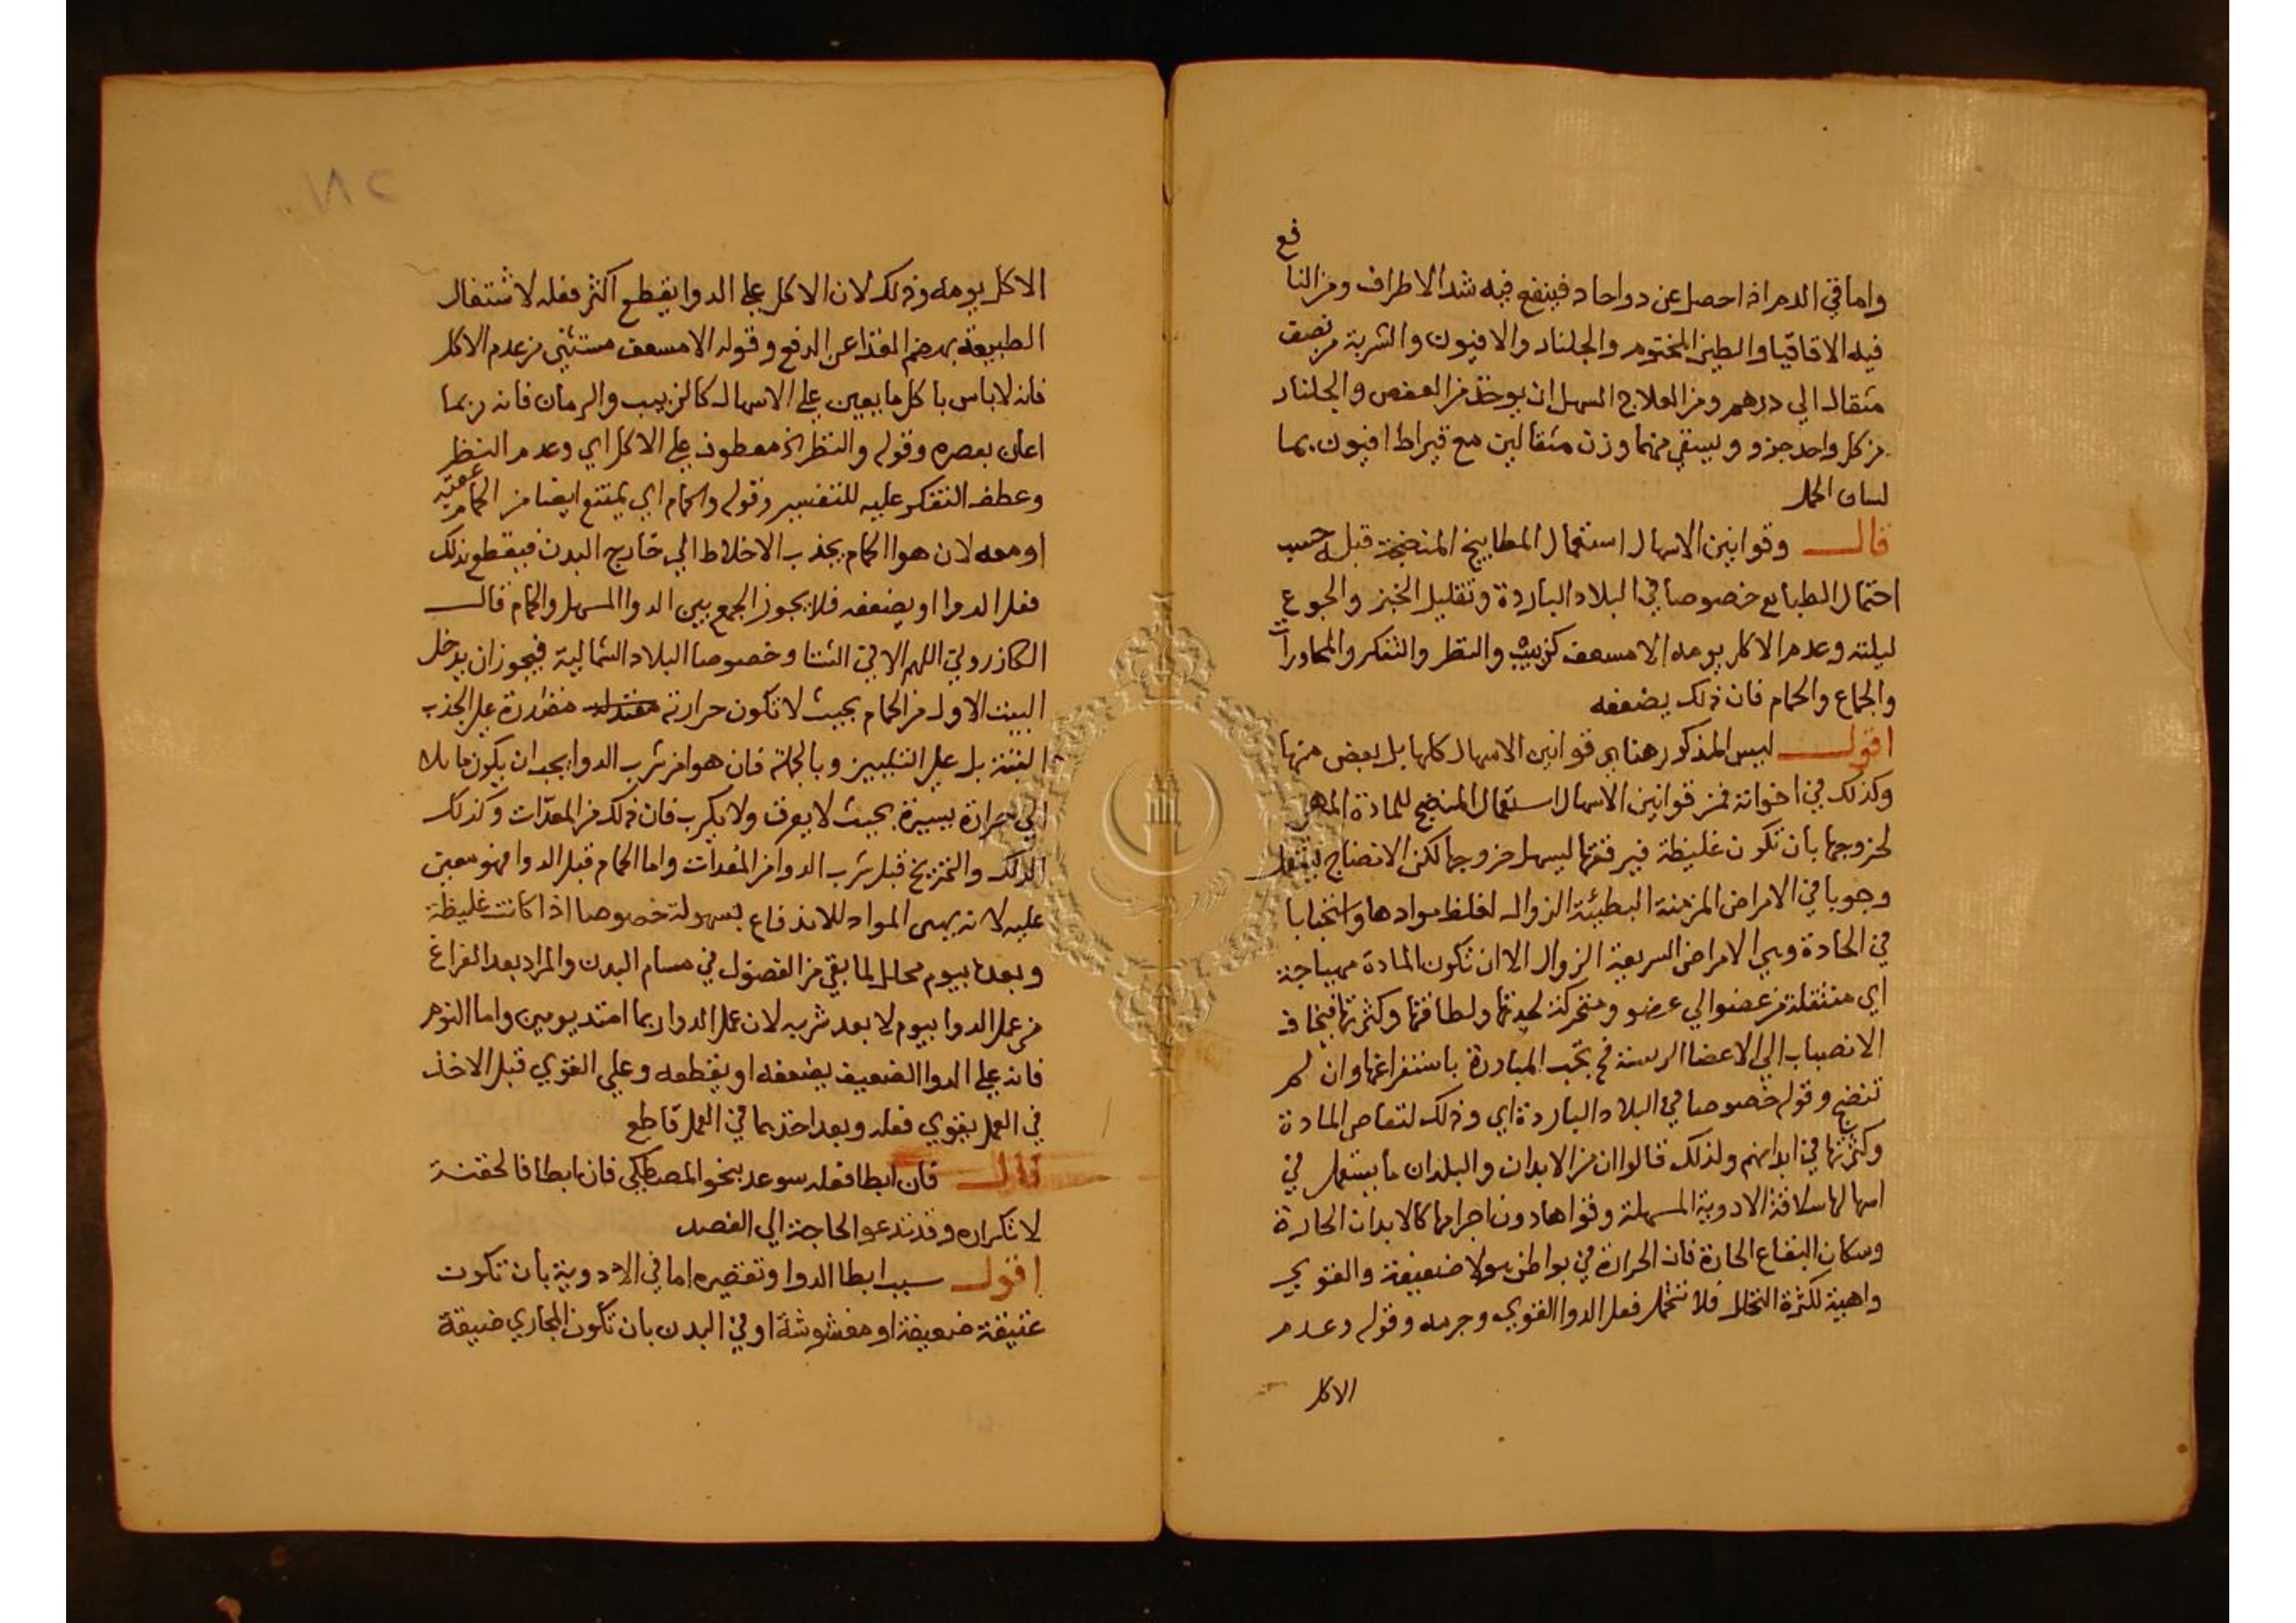 واما في الدم اذا حصل عن دوا حاد فينفع فيه شد الاطراف ومن النافع
فيه الاقاقيا والطين المختوم والجلنار والافيون والشربة من نصف
مثقال الي درهم ومن العلاج السهل ان يوخذ من العفص والجلنار
من كل واحد جزو ويسقي منهما وزن مثقالين مع قيراط افيون بما
لسان الحمل
قال وقوانين الاسهال استعمال المطابيخ المنضجة قبله حسب
احتمال الطبايع خصوصا في البلاد الباردة وتقليل الخبز والجوع
ليلته وعدم الاكل يومه الا مسعف كزبيب والنظر والتفكر والمحاورات
والجماع والحمام فان ذلك يضعفه
اقول ليس المذكور هنا هي قوانين الاسهال كلها بل بعض منها
وكذلك في اخواته فمن قوانين الاسهال استعمال المنضج للمادة
لخروجها بان تكون غليظة فيرققها ليسهل خروجها لكن الانضاج يستعمل
وجوبا في الامراض المزمنة البطيئة الزوال لغلظ موادها واستحبابا
في الحادة وهي الامراض السريعة الزوال الا ان تكون المادة مهياجة
اي منتقلة من عضو الي عضو ومتحركة لحدتها ولطافتها وكثرتها فيخاف
الانصباب الي الاعضا الريسة فح يجب المبادرة باستفراغها وان لم
تنضج وقوله خصوصا في البلاد الباردة اي وذلك لتعاصي المادة
وكثرتها في ابدانهم ولذلك قالوا ان من الابدان والبلدان ما يستعمل في
اسهالها سلاقة الادوية المسهلة وقواها دون اجرامها كالابدان الحارة
وسكان البقاع الحارة فان الحرارة في بواطن هولا ضعيفة والقوي
واهية لكثرة التحلل فلا تتحمل فعل الدوا القوي وجرمه وقوله وعدم
الاكل
الاكل يومه وذلك لان الاكل علي الدوا يقطع اكثر فعله لاشتغال
الطبيعة بهضم الغذا عن الدفع وقوله الا مسعف مستثني من عدم الاكل
فانه لا باس باكل ما يعين علي الاسهال كالزبيب والرمان فانه ربما
اعان بعصره وقوله والنظر الخ معطوف علي الاكل اي وعدم النظر
وعطف التفكر عليه للتفسير وقوله والحمام اي يمتنع ايضا من الحمام
او معه لان هوا الحمام يجذب الاخلاط الي خارج البدن فيقطع ذلك
فعل الدوا او يضعفه فلا يجوز الجمع بين الدوا المسهل والحمام قال
الكازروني اللهم الا في الشتا وخصوصا البلاد الشمالية فيجوز ان يدخل
البيت الاول من الحمام بحيث لا تكون حرارته مقتدرة علي الجذب
البتة بل علي التليين وبالجملة فان هوا من شرب الدوا يجب ان يكون مايلا
الي حرارة يسيرة بحيث لا يعرق ولا يكرب فان ذلك من المعدات وكذلك
الدلك والتمريخ قبل شرب الدوا من المعدات واما الحمام قبل الدوا فهو معين
عليه لانه يهيى المواد للاندفاع بسهولة خصوصا اذا كانت غليظة
وبعده بيوم محلل لما بقي من الفضول في مسام البدن والمراد بعد الفراغ
من عمل الدوا بيوم لا بعد شربه لان عمل الدوا ربما امتد يومين واما النوم
فانه علي الدوا الضعيف يضعفه او يقطعه وعلي القوي قبل الاخذ
في العمل يقوي فعله وبعد اخذهما في العمل قاطع
قال فان ابطا فعله سوعد بنحو المصطكي فان ابطا فالحقنة
لا تكراره وقد تدعو الحاجة الي الفصد
اقول سبب ابطا الدوا وتقصيره اما في الادوية بان تكون
عتيقة ضعيفة او مغشوشة او في البدن بان تكون المجاري ضيقة